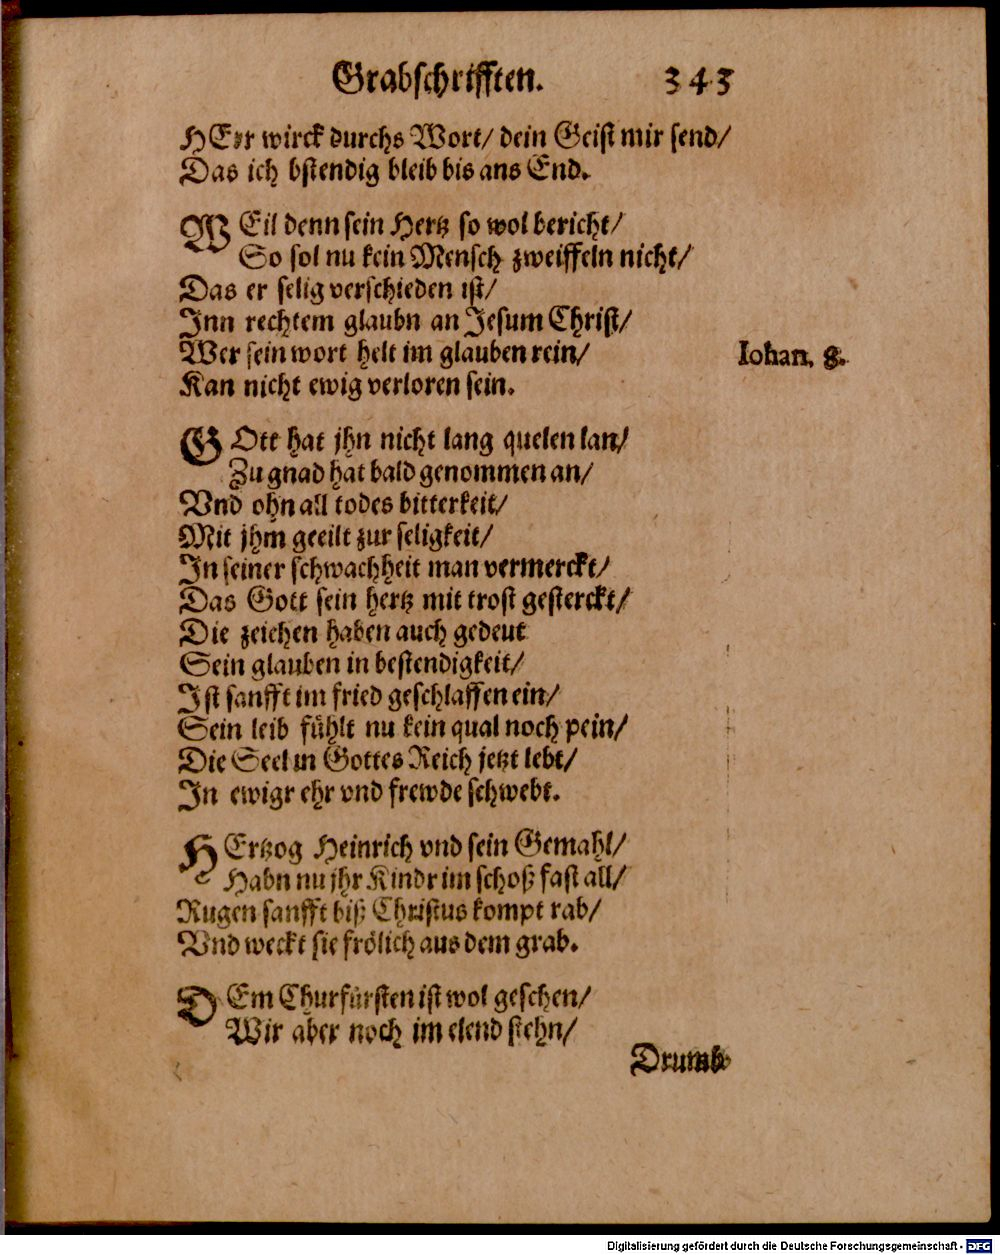 Grabschrifften. 343
HErr wirck durchs Wort/ dein Geist mir send/
Das ich bstendig bleib bis ans End.
WEil denn sein Hertz so wol bericht/
So sol nu kein Mensch zweiffeln nicht/
Das er selig verschieden ist/
Inn rechtem glaubn an Jesum Christ/
Wer sein wort helt im glauben rein/
Iohan. 8.
Kan nicht ewig verloren sein.
GOtt hat jhn nicht lang quelen lan/
Zu gnad hat bald genommen an/
Vnd ohn all todes bitterkeit/
Mit jhm geeilt zur seligkeit/
In seiner schwachheit man vermerckt/
Das Gott sein hertz mit trost gesterckt/
Die zeichen haben auch gedeut
Sein glauben in bestendigkeit/
Ist sanfft im fried geschlaffen ein/
Sein leib fühlt nu kein qual noch pein/
Die Seel in Gottes Reich jetzt lebt/
In ewigr ehr vnd frewde schwebt.
HErtzog Heinrich vnd sein Gemahl/
Habn nu jhr Kindr im schoß fast all/
Rugen sanfft biß Christus kompt rab/
Vnd weckt sie frölich aus dem grab.
DEm Churfürsten ist wol geschen/
Wir aber noch im elend stehn/
Drumb
Digitalisierung gefördert durch die Deutsche Forschungsgemeinschaft - DFG